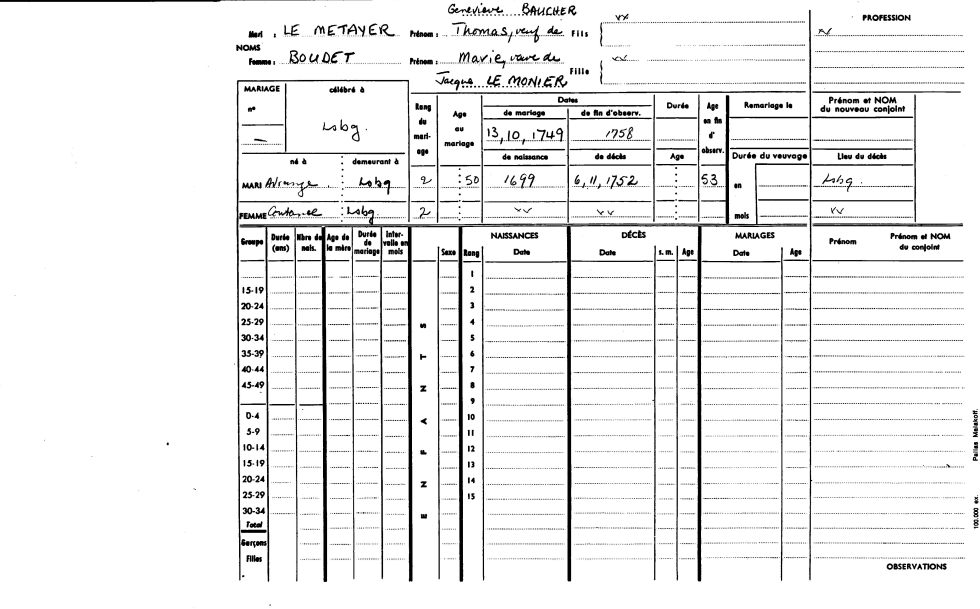 Geneviève BAUCHER
Mari : LE METAYER Prénom : Thomas, veuf de Fils
PROFESSION
NOMS
Femme : BOUDET Prénom : Marie, veuve de Fille
Jacques LE MONIER
MARIAGE célébré à
n° — Lsbg.
Rang du mariage Age au mariage Dates Durée Age en fin d'observ. Remariage le Prénom et NOM du nouveau conjoint
de mariage de fin d'observ.
13, 10, 1749 1758
né à demeurant à de naissance de décès Age Durée du veuvage Lieu du décès
MARI Lsbg 2 50 1699 6, 11, 1752 53 en Lsbg.
FEMME Lsbg. 2 vv vv mois vv
Groupe Durée (ans) Nbre de nais. Age de la mère Durée de mariage Intervalle en mois Sexe Rang NAISSANCES DÉCÈS MARIAGES Prénom Prénom et NOM du conjoint
Date Date s. m. Age Date Age
ENFANTS
1
15-19 2
20-24 3
25-29 4
30-34 5
35-39 6
40-44 7
45-49 8
9
0-4 10
5-9 11
10-14 12
15-19 13
20-24 14
25-29 15
30-34
Total
Garçons
Filles
OBSERVATIONS
100.000 ex. Pallas Malakoff.